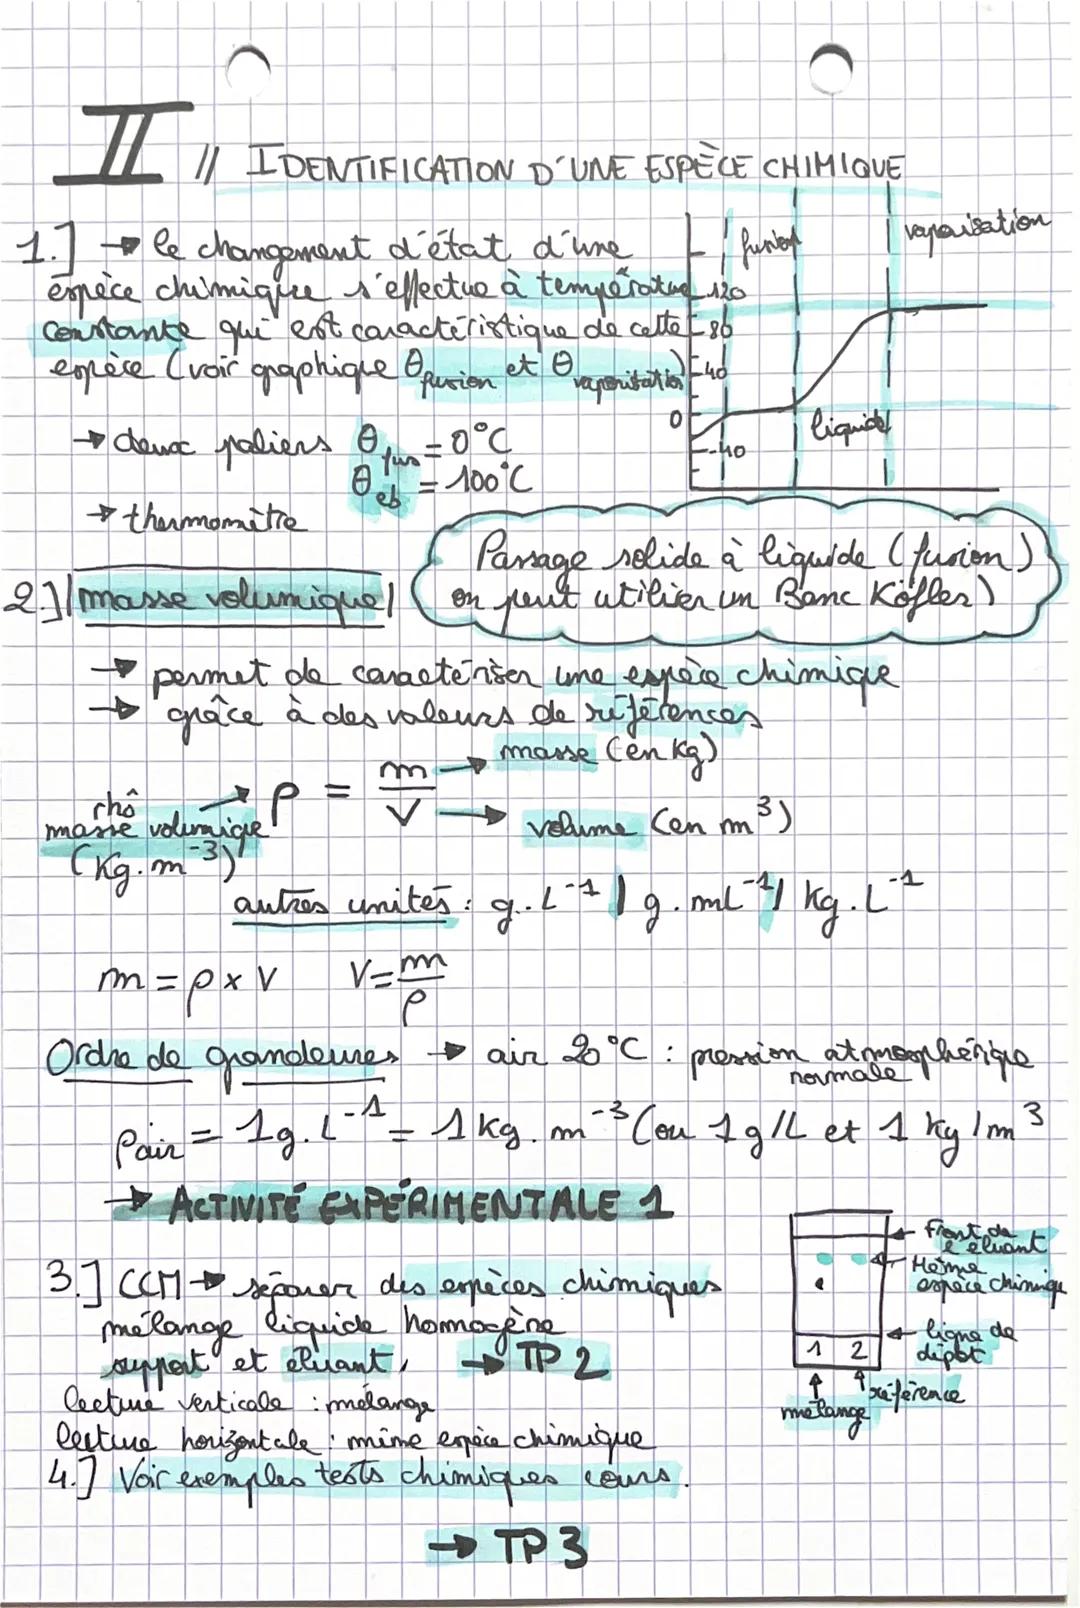 II // IDENTIFICATION D'UNE ESPÈCE CHIMIQUE
1.] → le changement d'état d'une
espèce chimique s'effectue à température
constante qui est caractéristique de cette
espèce (voir graphique θ fusion et θ vaporisation)
→ deux paliers θ fus = 0°C
θ eb = 100°C
→ thermomètre
fusion
vaporisation
120
80
40
0
-40
liquide
Passage solide à liquide (fusion)
on peut utiliser un Banc Köfler)
2.] masse volumique
→ permet de caractériser une espèce chimique
→ grâce à des valeurs de références
rhô
masse volumique
(Kg.m⁻³)
→ ρ = m/V
→ masse (en Kg)
→ volume (en m³)
autres unités : g.L⁻¹ / g.mL⁻¹ / kg.L⁻¹
m = ρ x V V = m/ρ
Ordre de grandeures → air 20°C : pression atmosphérique
normale
ρair = 1g.L⁻¹ = 1 kg.m⁻³ (ou 1g/L et 1 kg/m³
→ ACTIVITÉ EXPÉRIMENTALE 1
3.] CCM → séparer des espèces chimiques
mélange liquide homogène
support et éluant, → TP 2
lecture verticale : mélange
lecture horizontale : même espèce chimique
4.] Voir exemples tests chimiques cours.
→ TP 3
← Front de
l'éluant
← Même
espèce chimique
← ligne de
dépôt
1 2
référence
mélange